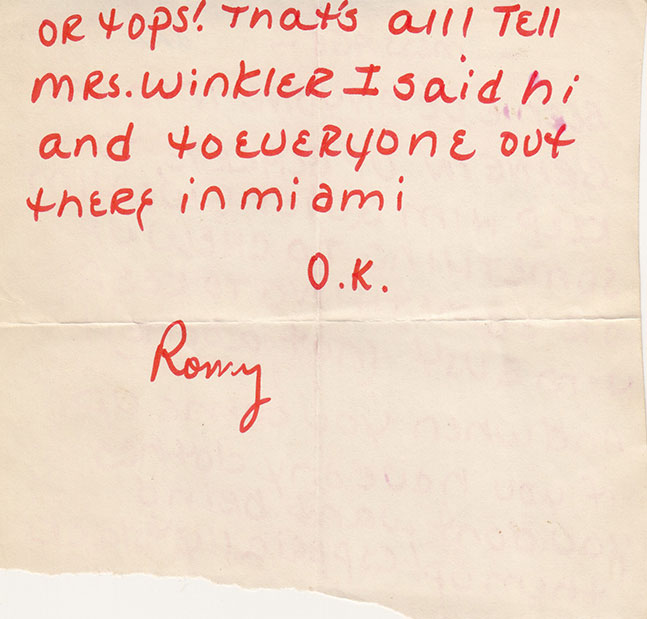 OR tops! That's alll Tell
mRs. WinklER I said hi
and to EVERyonE out
thERE in miami
O.K.
Romy